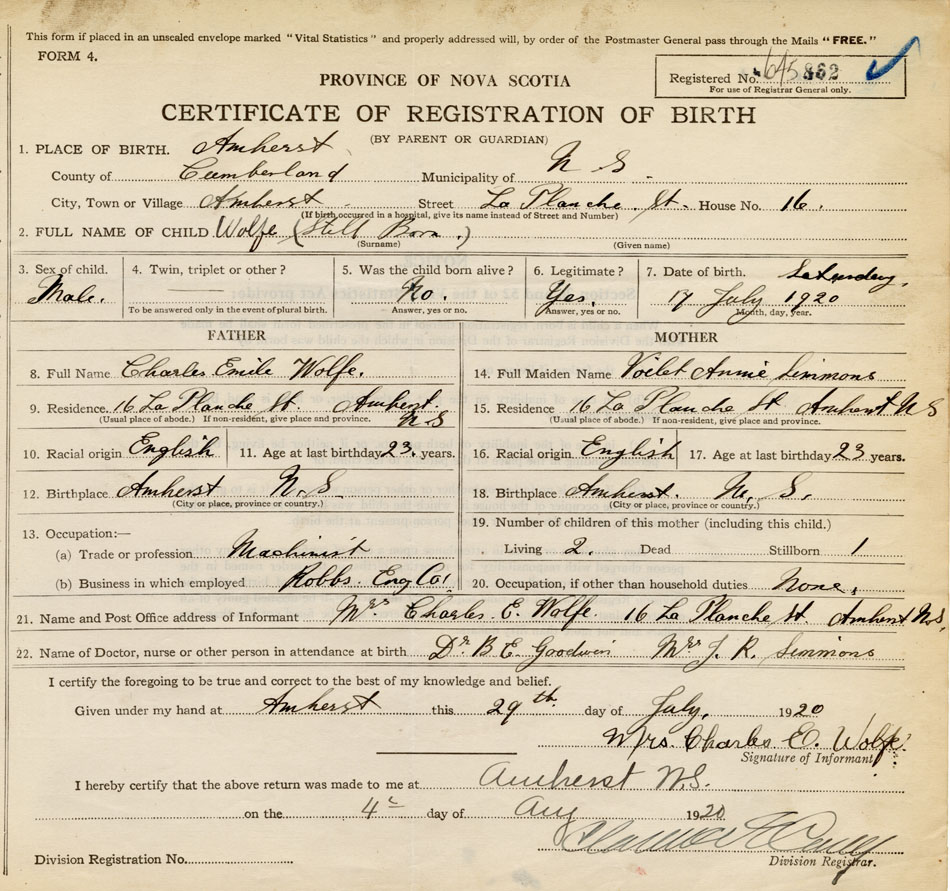 This form if placed in an unsealed envelope marked "Vital Statistics" and properly addressed will, by order of the Postmaster General pass through the Mails "FREE."
FORM 4.
PROVINCE OF NOVA SCOTIA
Registered No. 645862
For use of Registrar General only.
CERTIFICATE OF REGISTRATION OF BIRTH
(BY PARENT OR GUARDIAN)
1. PLACE OF BIRTH. Amherst
County of Cumberland Municipality of N S
City, Town or Village Amherst Street La Planche St. House No. 16.
(If birth occurred in a hospital, give its name instead of Street and Number)
2. FULL NAME OF CHILD Wolfe (Still Born.)
(Surname) (Given name)
3. Sex of child. 4. Twin, triplet or other? 5. Was the child born alive? 6. Legitimate? 7. Date of birth. Saturday,
Male. No. Yes. 17 July 1920
To be answered only in the event of plural birth. Answer, yes or no. Answer, yes or no. Month, day, year.
FATHER MOTHER
8. Full Name Charles Emile Wolfe. 14. Full Maiden Name Voilet Annie Simmons
9. Residence. 16 La Planche St. Amherst N S 15. Residence 16 La Planche St Amherst N S
(Usual place of abode.) If non-resident, give place and province. (Usual place of abode.) If non-resident, give place and province.
10. Racial origin English 11. Age at last birthday 23. years. 16. Racial origin English 17. Age at last birthday 23 years.
12. Birthplace Amherst N. S. 18. Birthplace Amherst. N. S.
(City or place, province or country.) (City or place, province or country.)
13. Occupation:— 19. Number of children of this mother (including this child.)
(a) Trade or profession Machinist Living 2. Dead Stillborn 1
(b) Business in which employed Robbs. Eng Co. 20. Occupation, if other than household duties None.
21. Name and Post Office address of Informant Mrs Charles. E. Wolfe. 16 La Planche St Amherst N.S.
22. Name of Doctor, nurse or other person in attendance at birth Dr. B E Goodwin Mrs J. R. Simmons
I certify the foregoing to be true and correct to the best of my knowledge and belief.
Given under my hand at Amherst this 29th day of July, 1920
Mrs. Charles E. Wolfe.
Signature of Informant
I hereby certify that the above return was made to me at Amherst N.S.
on the 4 day of Aug 1920
Division Registration No.
Division Registrar.